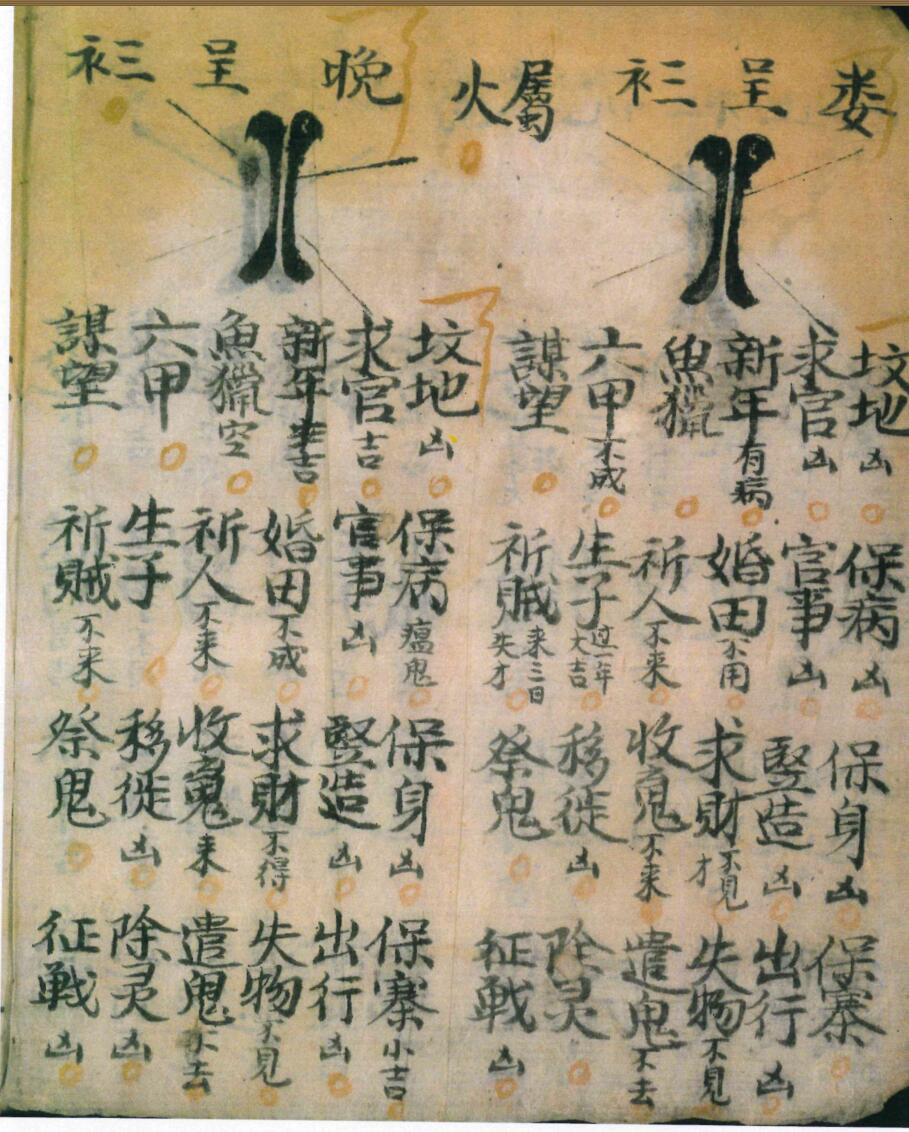 娄 呈 衤三
屬火
坟地凶 保病凶 保身凶 保寨
求官凶 官事凶 竪造凶 出行凶
新年有病 婚田不用 求財不見才 失物不見
魚獵 祈人不来 收 不来 遣鬼不去
六甲不成 生子这一年大吉 移徙凶 除灵
謀望 祈賊来三日失才 祭鬼 征戦凶
晚 呈 衤三
坟地凶 保病瘟鬼 保身凶 保寨小吉
求官吉 官事凶 竪造凶 出行凶
新年 吉 婚田不成 求財不得 失物不見
魚獵空 祈人不来 收 来 遣鬼不去
六甲 生子 移徙凶 除灵凶
謀望 祈賊不来 祭鬼 征戦凶